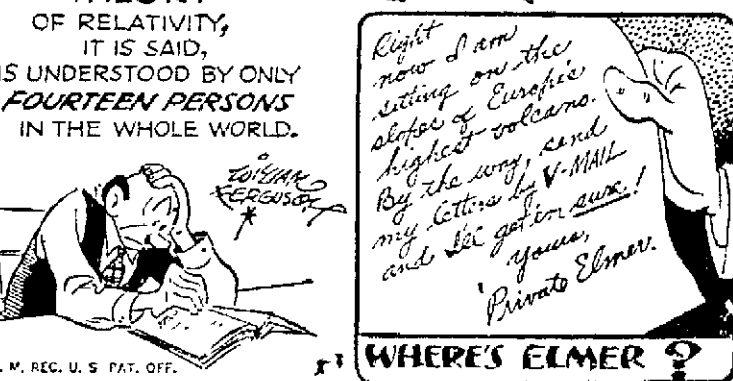 THEORY
OF RELATIVITY,
IT IS SAID,
IS UNDERSTOOD BY ONLY
FOURTEEN PERSONS
IN THE WHOLE WORLD.
WILLIAM
FERGUSON
M. REG. U. S. PAT. OFF.
Right
now I am
sitting on the
slopes of Europe's
highest volcano.
By the way, send
my letters by V-MAIL
and I'll get 'em sure!
yours,
Private Elmer.
WHERE'S ELMER ?